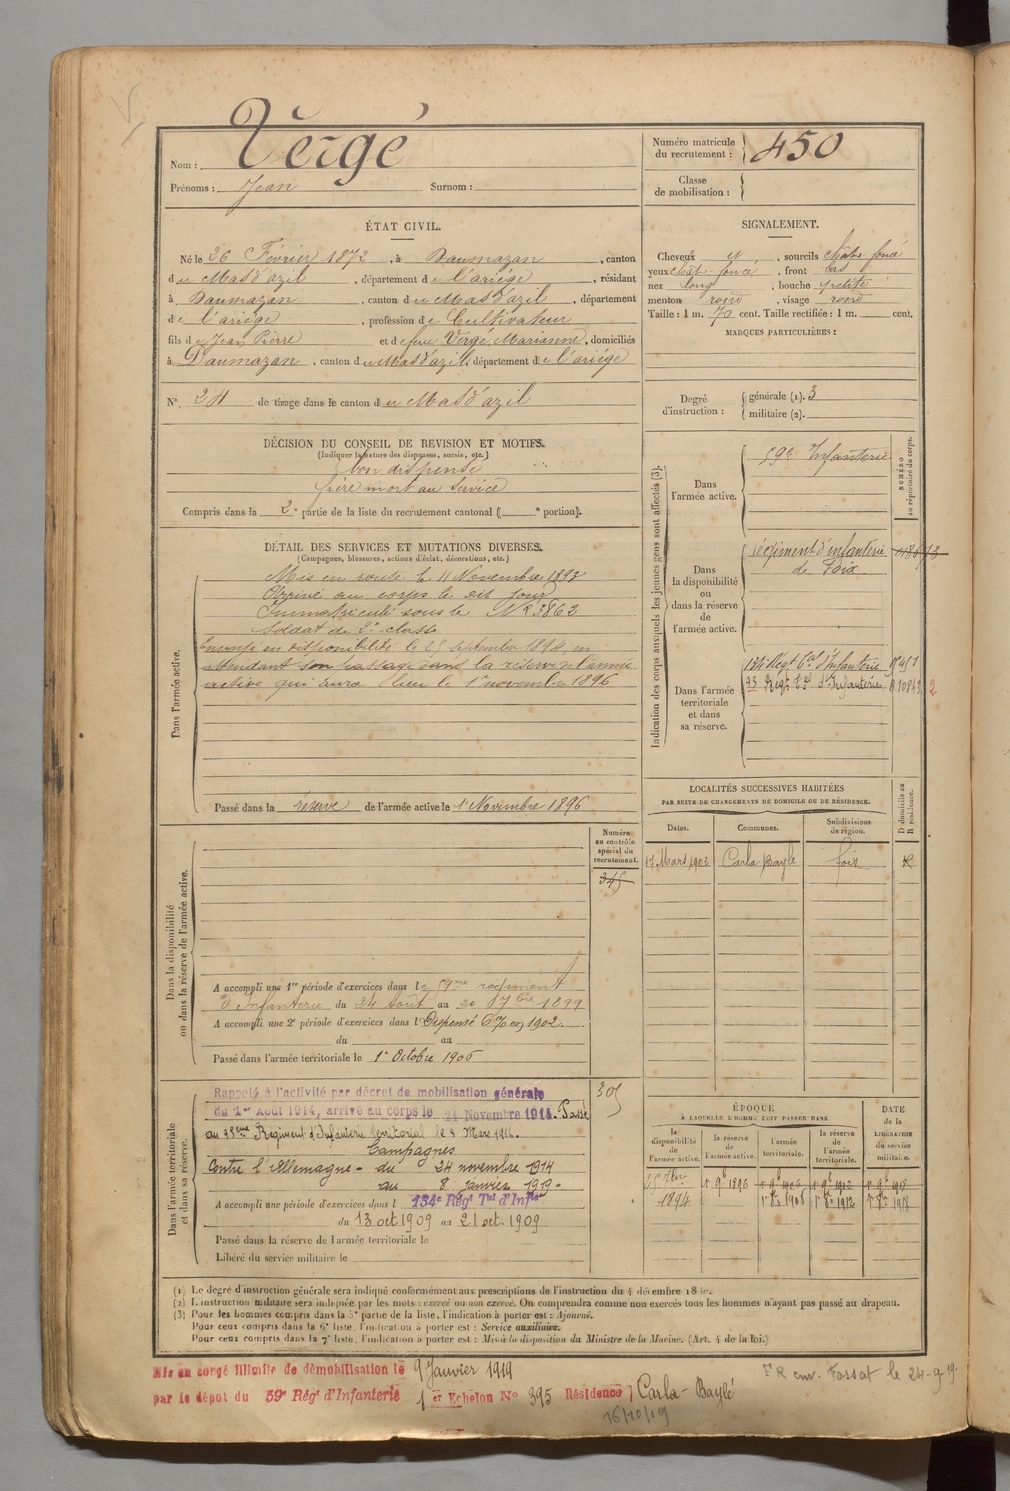 Nom : Vergé
Prénoms : Jean Surnom :
Numéro matricule du recrutement : 450
Classe de mobilisation :
ÉTAT CIVIL.
Né le 26 Février 1872, à Daumazan, canton
du Mas d'azil, département de l'ariége, résidant
à Daumazan, canton du Mas d'azil, département
de l'ariége, profession de Cultivateur
fils de Jean Pierre et de feue Vergé Marianne, domiciliés
à Daumazan, canton du Mas d'azil, département de l'ariége
N° 24 de tirage dans le canton du Mas d'azil
SIGNALEMENT.
Cheveux et, sourcils chât. foncé
yeux chât. foncé, front bas
nez long, bouche petite
menton rond, visage rond
Taille : 1 m. 70 cent. Taille rectifiée : 1 m. cent.
MARQUES PARTICULIÈRES :
Degré d'instruction : générale (1). 3
militaire (2).
DÉCISION DU CONSEIL DE REVISION ET MOTIFS.
(Indiquer la nature des dispenses, sursis, etc.)
bon dispensé
frère mort au service
Compris dans la 2e partie de la liste du recrutement cantonal ( e portion).
DÉTAIL DES SERVICES ET MUTATIONS DIVERSES.
(Campagnes, blessures, actions d'éclat, décorations, etc.)
Dans l'armée active.
Mis en route le 11 Novembre 1893
Arrivé au corps le dit jour
Immatriculé sous le N° 3862
Soldat de 2e classe
Envoyé en disponibilité le 25 septembre 1894, en
attendant son passage dans la réserve de l'armée
active qui aura lieu le 1er novembre 1896
Passé dans la réserve de l'armée active le 1er Novembre 1896
Indication des corps auxquels les jeunes gens sont affectés (3).
NUMÉRO au répertoire du corps.
Dans l'armée active.
59e Infanterie
Dans la disponibilité ou dans la réserve de l'armée active.
régiment d'infanterie
de Foix
Dans l'armée territoriale et dans sa réserve.
134e Régt tal d'Infanterie
93 Régt tal d'Infanterie
LOCALITÉS SUCCESSIVES HABITÉES
PAR SUITE DE CHANGEMENTS DE DOMICILE OU DE RÉSIDENCE.
Dates. Communes. Subdivisions de région. D domicile ou R résidence.
17 Mars 1902 Carla Bayle foix R
Numéro au contrôle spécial du recrutement.
345
Dans la disponibilité ou dans la réserve de l'armée active.
A accompli une 1re période d'exercices dans le 59me régiment
d'Infanterie du 24 Août au 20 7bre 1899
A accompli une 2e période d'exercices dans l Dispensé en 1902.
du au
Passé dans l'armée territoriale le 1er Octobre 1906
305
Dans l'armée territoriale et dans sa réserve.
Rappelé à l'activité par décret de mobilisation générale
du 1er Août 1914, arrivé au corps le 24 Novembre 1914. Passé
au 93eme Régiment d'Infanterie territorial le 8 Mars 1916.
Campagnes
Contre l'Allemagne - du 24 novembre 1914
au 8 janvier 1919.
A accompli une période d'exercices dans l 134e Régt Tal d'Infie
du 13 oct 1909 au 21 oct. 1909
Passé dans la réserve de l'armée territoriale le
Libéré du service militaire le
ÉPOQUE
À LAQUELLE L'HOMME DOIT PASSER DANS
la disponibilité de l'armée active. la réserve de l'armée active. l'armée territoriale. la réserve de l'armée territoriale.
DATE de la LIBÉRATION du service militaire.
25 7bre 1894 1er 9b 1896 1er 9b 1906 1er 9b 1912 1er 9b 1918
1er 8bre 1906 1er 8bre 1912 1er 8bre 1918
(1) Le degré d'instruction générale sera indiqué conformément aux prescriptions de l'instruction du 4 décembre 1889.
(2) L'instruction militaire sera indiquée par les mots : exercé ou non exercé. On comprendra comme non exercés tous les hommes n'ayant pas passé au drapeau.
(3) Pour les hommes compris dans la 5e partie de la liste, l'indication à porter est : Ajourné.
Pour ceux compris dans la 6e liste, l'indication à porter est : Service auxiliaire.
Pour ceux compris dans la 7e liste, l'indication à porter est : Mis à la disposition du Ministre de la Marine. (Art. 4 de la loi.)
Mis en congé illimité de démobilisation le 9 Janvier 1919
par le dépôt du 59e Régt d'Infanterie 1er Echelon N° 395 Résidence Carla-Baylé
FR env. Fossat le 24-9-19.
16/10/19